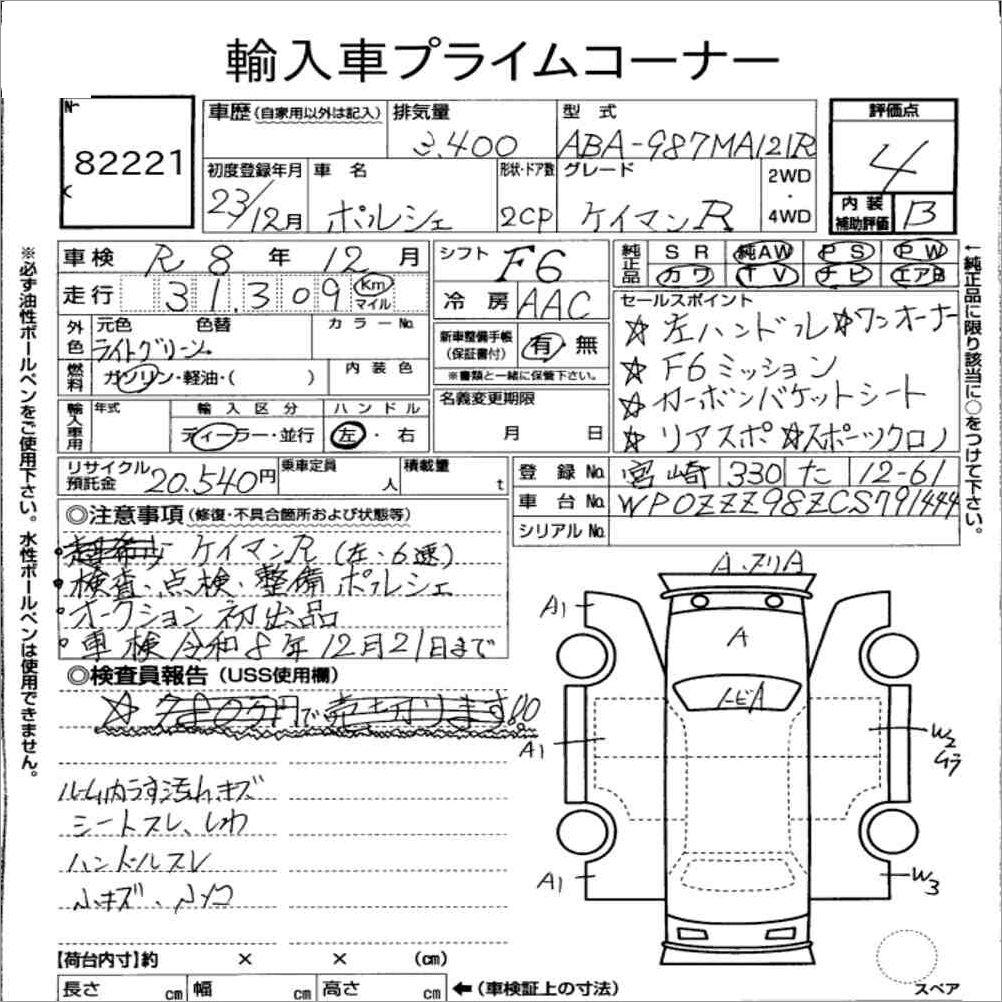 輸入車プライムコーナー
No
82221
車歴(自家用以外は記入)
排気量
3.400
型式
ABA-987MA121R
評価点
4
初度登録年月
23/12月
車名
ポルシェ
形状・ドア数
2CP
グレード
ケイマンR
2WD
・
4WD
内装
補助評価
B
車検 R8年 12月
走行 31,309 Km マイル
シフト F6
冷房 AAC
純正品 SR 純AW PS PW
カワ TV ナビ エアB
外色 元色 色替
ライトグリーン
カラーNo.
燃料 ガソリン・軽油・( )
内装色
新車整備手帳
(保証書付)
有・無
※書類と一緒に保管下さい。
セールスポイント
☆左ハンドル ☆ワンオーナー
☆F6ミッション
☆カーボンバケットシート
☆リアスポ ☆スポーツクロノ
輸入車用 年式
輸入区分
ディーラー・並行
ハンドル
左・右
名義変更期限
月 日
リサイクル
預託金 20.540円
乗車定員 人
積載量 t
登録No. 宮崎 330 た 12-61
車台No. WP0ZZZ98ZCS791444
シリアルNo.
◎注意事項(修復・不具合箇所および状態等)
超希少 ケイマンR(左、6速)
・検査、点検、整備 ポルシェ
・オークション初出品
・車検 令和8年12月21日まで
◎検査員報告(USS使用欄)
ルーム内うす汚れキズ
シートスレ、しわ
ハンドルスレ
小キズ、小凹
A、スリA
A1
A
トビA
A1
W2
ムラ
A1
W3
スペア
【荷台内寸】約 × × (cm)
長さ cm 幅 cm 高さ cm ←(車検証上の寸法)
※必ず油性ボールペンをご使用下さい。水性ボールペンは使用できません。
←純正品に限り該当に○をつけて下さい。